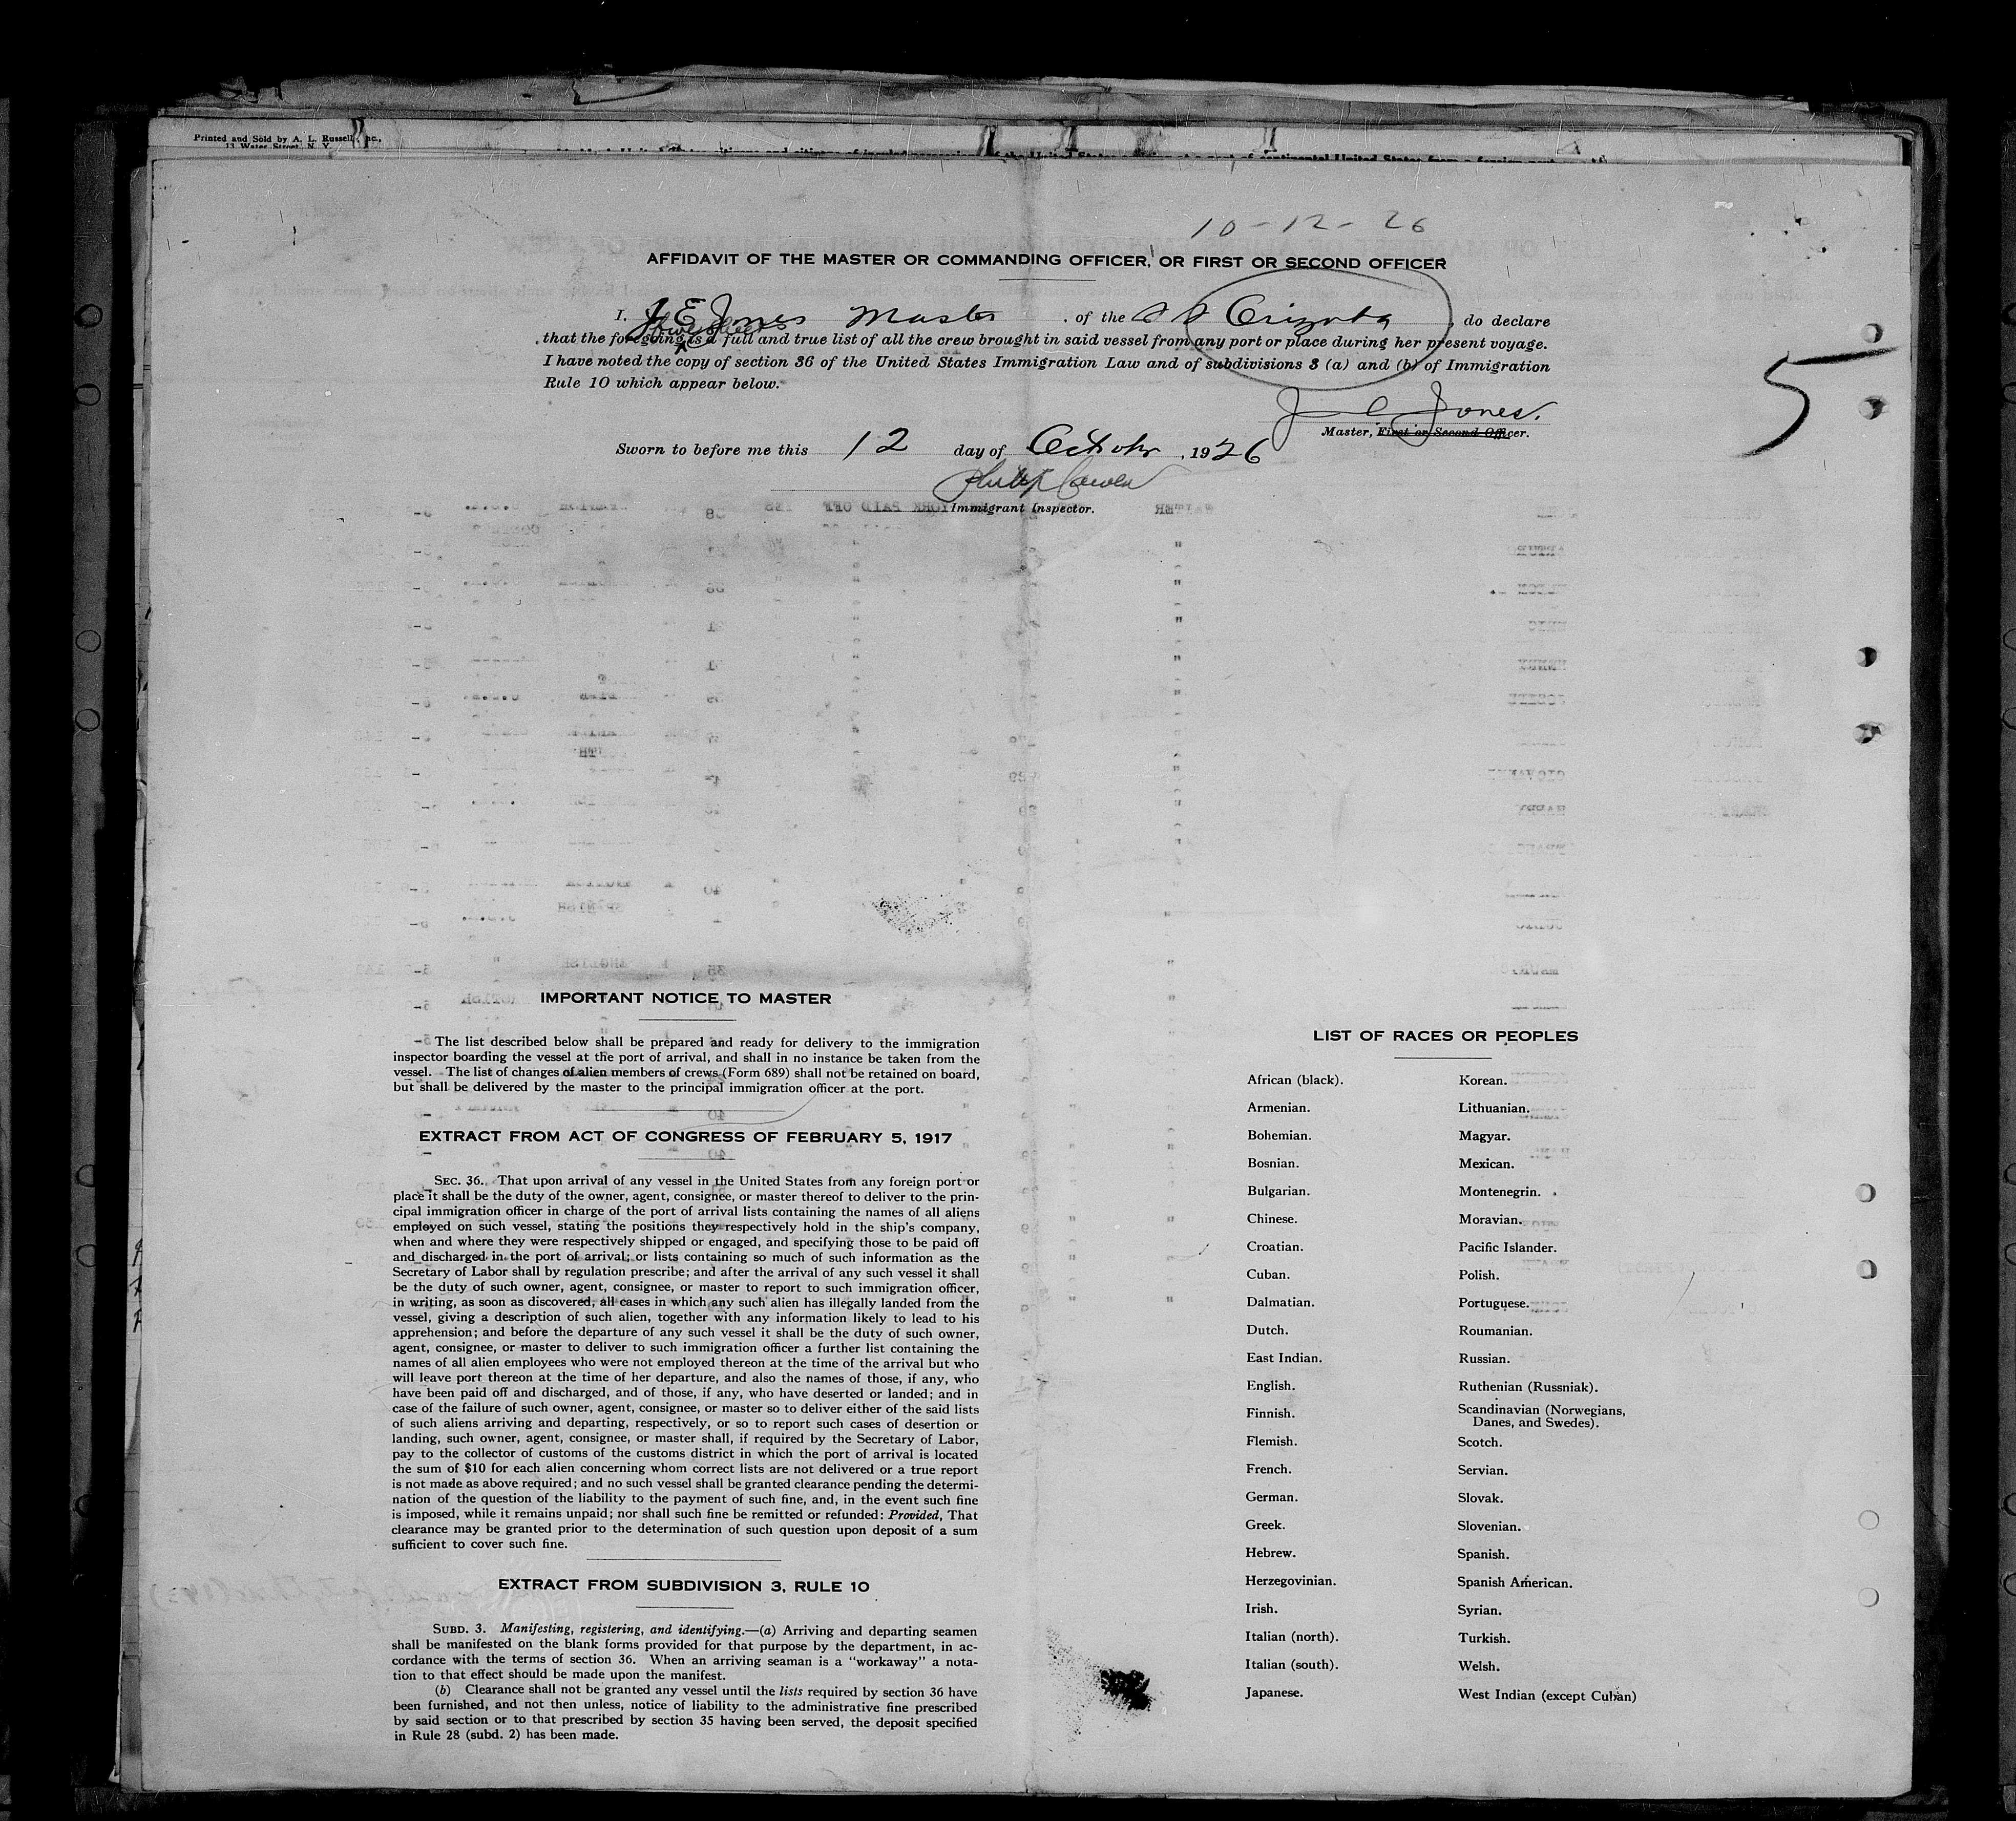 Printed and Sold by A. L. Russell, Inc.,
13 Water Street, N. Y.
10-12-26
AFFIDAVIT OF THE MASTER OR COMMANDING OFFICER, OR FIRST OR SECOND OFFICER
I, J E Jones Master , of the S S Orizaba , do declare
that the foregoing is a full and true list of all the crew brought in said vessel from any port or place during her present voyage.
I have noted the copy of section 36 of the United States Immigration Law and of subdivisions 3 (a) and (b) of Immigration
Rule 10 which appear below.
5
J E Jones.
Master, First or Second Officer.
Sworn to before me this 12 day of October , 1926
Philip Cowen
Immigrant Inspector.
IMPORTANT NOTICE TO MASTER
The list described below shall be prepared and ready for delivery to the immigration
inspector boarding the vessel at the port of arrival, and shall in no instance be taken from the
vessel. The list of changes of alien members of crews (Form 689) shall not be retained on board,
but shall be delivered by the master to the principal immigration officer at the port.
EXTRACT FROM ACT OF CONGRESS OF FEBRUARY 5, 1917
SEC. 36. That upon arrival of any vessel in the United States from any foreign port or
place it shall be the duty of the owner, agent, consignee, or master thereof to deliver to the prin-
cipal immigration officer in charge of the port of arrival lists containing the names of all aliens
employed on such vessel, stating the positions they respectively hold in the ship's company,
when and where they were respectively shipped or engaged, and specifying those to be paid off
and discharged in the port of arrival; or lists containing so much of such information as the
Secretary of Labor shall by regulation prescribe; and after the arrival of any such vessel it shall
be the duty of such owner, agent, consignee, or master to report to such immigration officer,
in writing, as soon as discovered, all cases in which any such alien has illegally landed from the
vessel, giving a description of such alien, together with any information likely to lead to his
apprehension; and before the departure of any such vessel it shall be the duty of such owner,
agent, consignee, or master to deliver to such immigration officer a further list containing the
names of all alien employees who were not employed thereon at the time of the arrival but who
will leave port thereon at the time of her departure, and also the names of those, if any, who
have been paid off and discharged, and of those, if any, who have deserted or landed; and in
case of the failure of such owner, agent, consignee, or master so to deliver either of the said lists
of such aliens arriving and departing, respectively, or so to report such cases of desertion or
landing, such owner, agent, consignee, or master shall, if required by the Secretary of Labor,
pay to the collector of customs of the customs district in which the port of arrival is located
the sum of $10 for each alien concerning whom correct lists are not delivered or a true report
is not made as above required; and no such vessel shall be granted clearance pending the determi-
nation of the question of the liability to the payment of such fine, and, in the event such fine
is imposed, while it remains unpaid; nor shall such fine be remitted or refunded: Provided, That
clearance may be granted prior to the determination of such question upon deposit of a sum
sufficient to cover such fine.
EXTRACT FROM SUBDIVISION 3, RULE 10
SUBD. 3. Manifesting, registering, and identifying.—(a) Arriving and departing seamen
shall be manifested on the blank forms provided for that purpose by the department, in ac-
cordance with the terms of section 36. When an arriving seaman is a "workaway" a nota-
tion to that effect should be made upon the manifest.
(b) Clearance shall not be granted any vessel until the lists required by section 36 have
been furnished, and not then unless, notice of liability to the administrative fine prescribed
by said section or to that prescribed by section 35 having been served, the deposit specified
in Rule 28 (subd. 2) has been made.
LIST OF RACES OR PEOPLES
African (black).
Armenian.
Bohemian.
Bosnian.
Bulgarian.
Chinese.
Croatian.
Cuban.
Dalmatian.
Dutch.
East Indian.
English.
Finnish.
Flemish.
French.
German.
Greek.
Hebrew.
Herzegovinian.
Irish.
Italian (north).
Italian (south).
Japanese.
Korean.
Lithuanian.
Magyar.
Mexican.
Montenegrin.
Moravian.
Pacific Islander.
Polish.
Portuguese.
Roumanian.
Russian.
Ruthenian (Russniak).
Scandinavian (Norwegians,
Danes, and Swedes).
Scotch.
Servian.
Slovak.
Slovenian.
Spanish.
Spanish American.
Syrian.
Turkish.
Welsh.
West Indian (except Cuban)